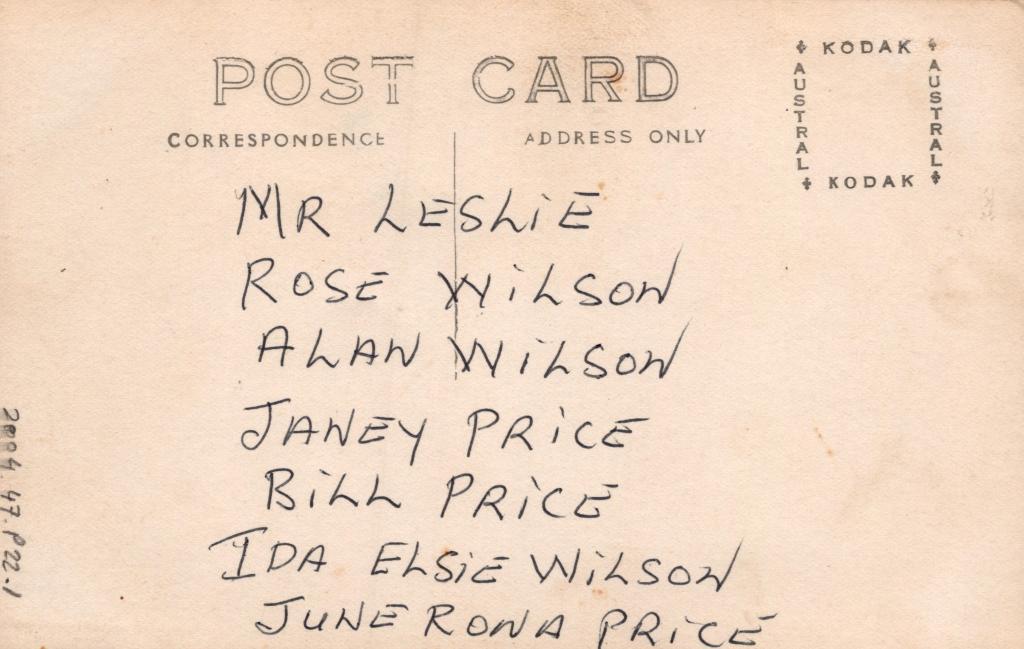 POST CARD
CORRESPONDENCE
ADDRESS ONLY
KODAK
AUSTRAL
AUSTRAL
KODAK
MR LESLiE
ROSE WiLSON
ALAN WiLSON
JANEY PRiCE
BiLL PRiCE
IDA ELSiE WiLSON
JUNE RONA PRiCE
2004.47.P22.1